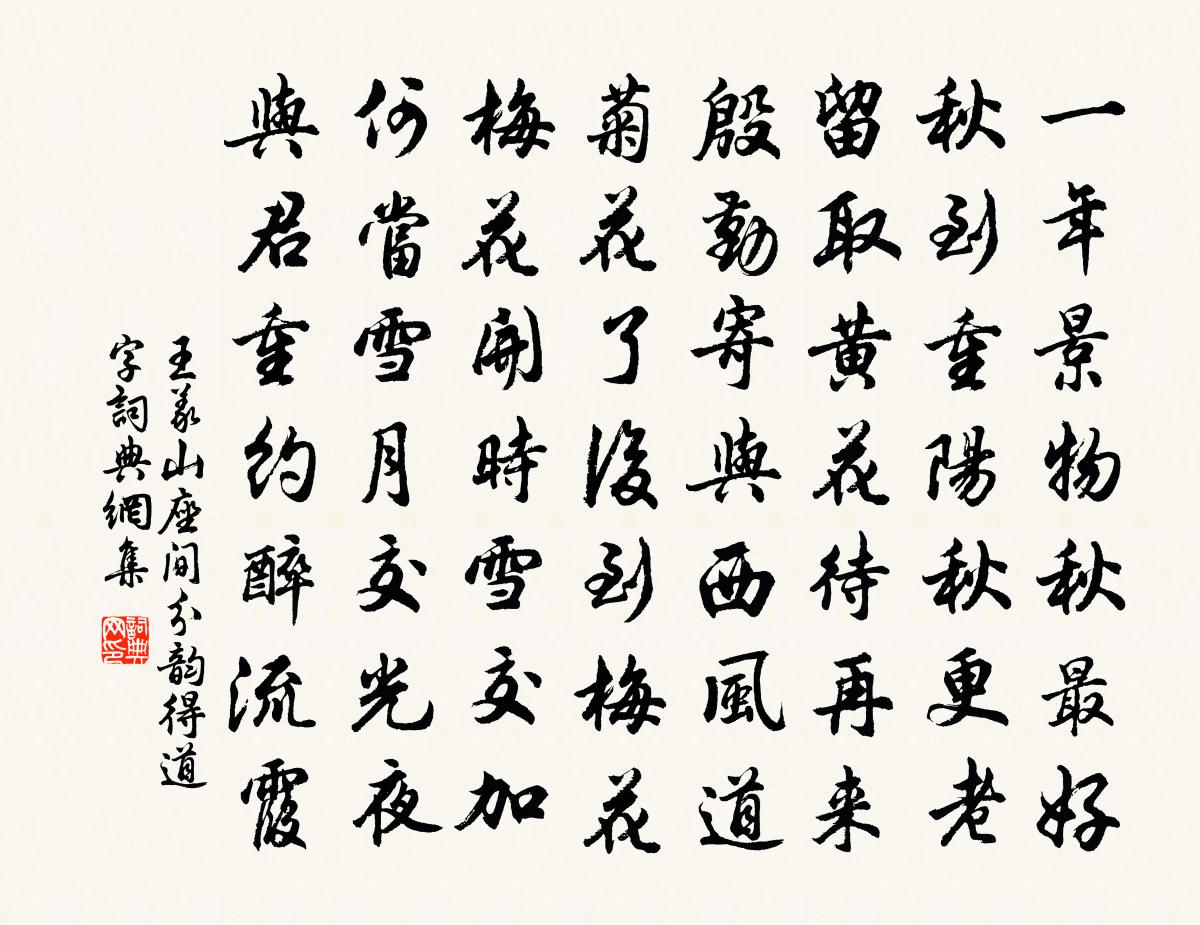 一年景物秋最好
秋到重陽秋更老
留取黄花待再来
殷勤寄與西風道
菊花了後到梅花
梅花開時雪交加
何當雪月交光夜
與君重約醉流霞
王義山座间分韵得道
字詞典網集
詞典
网印